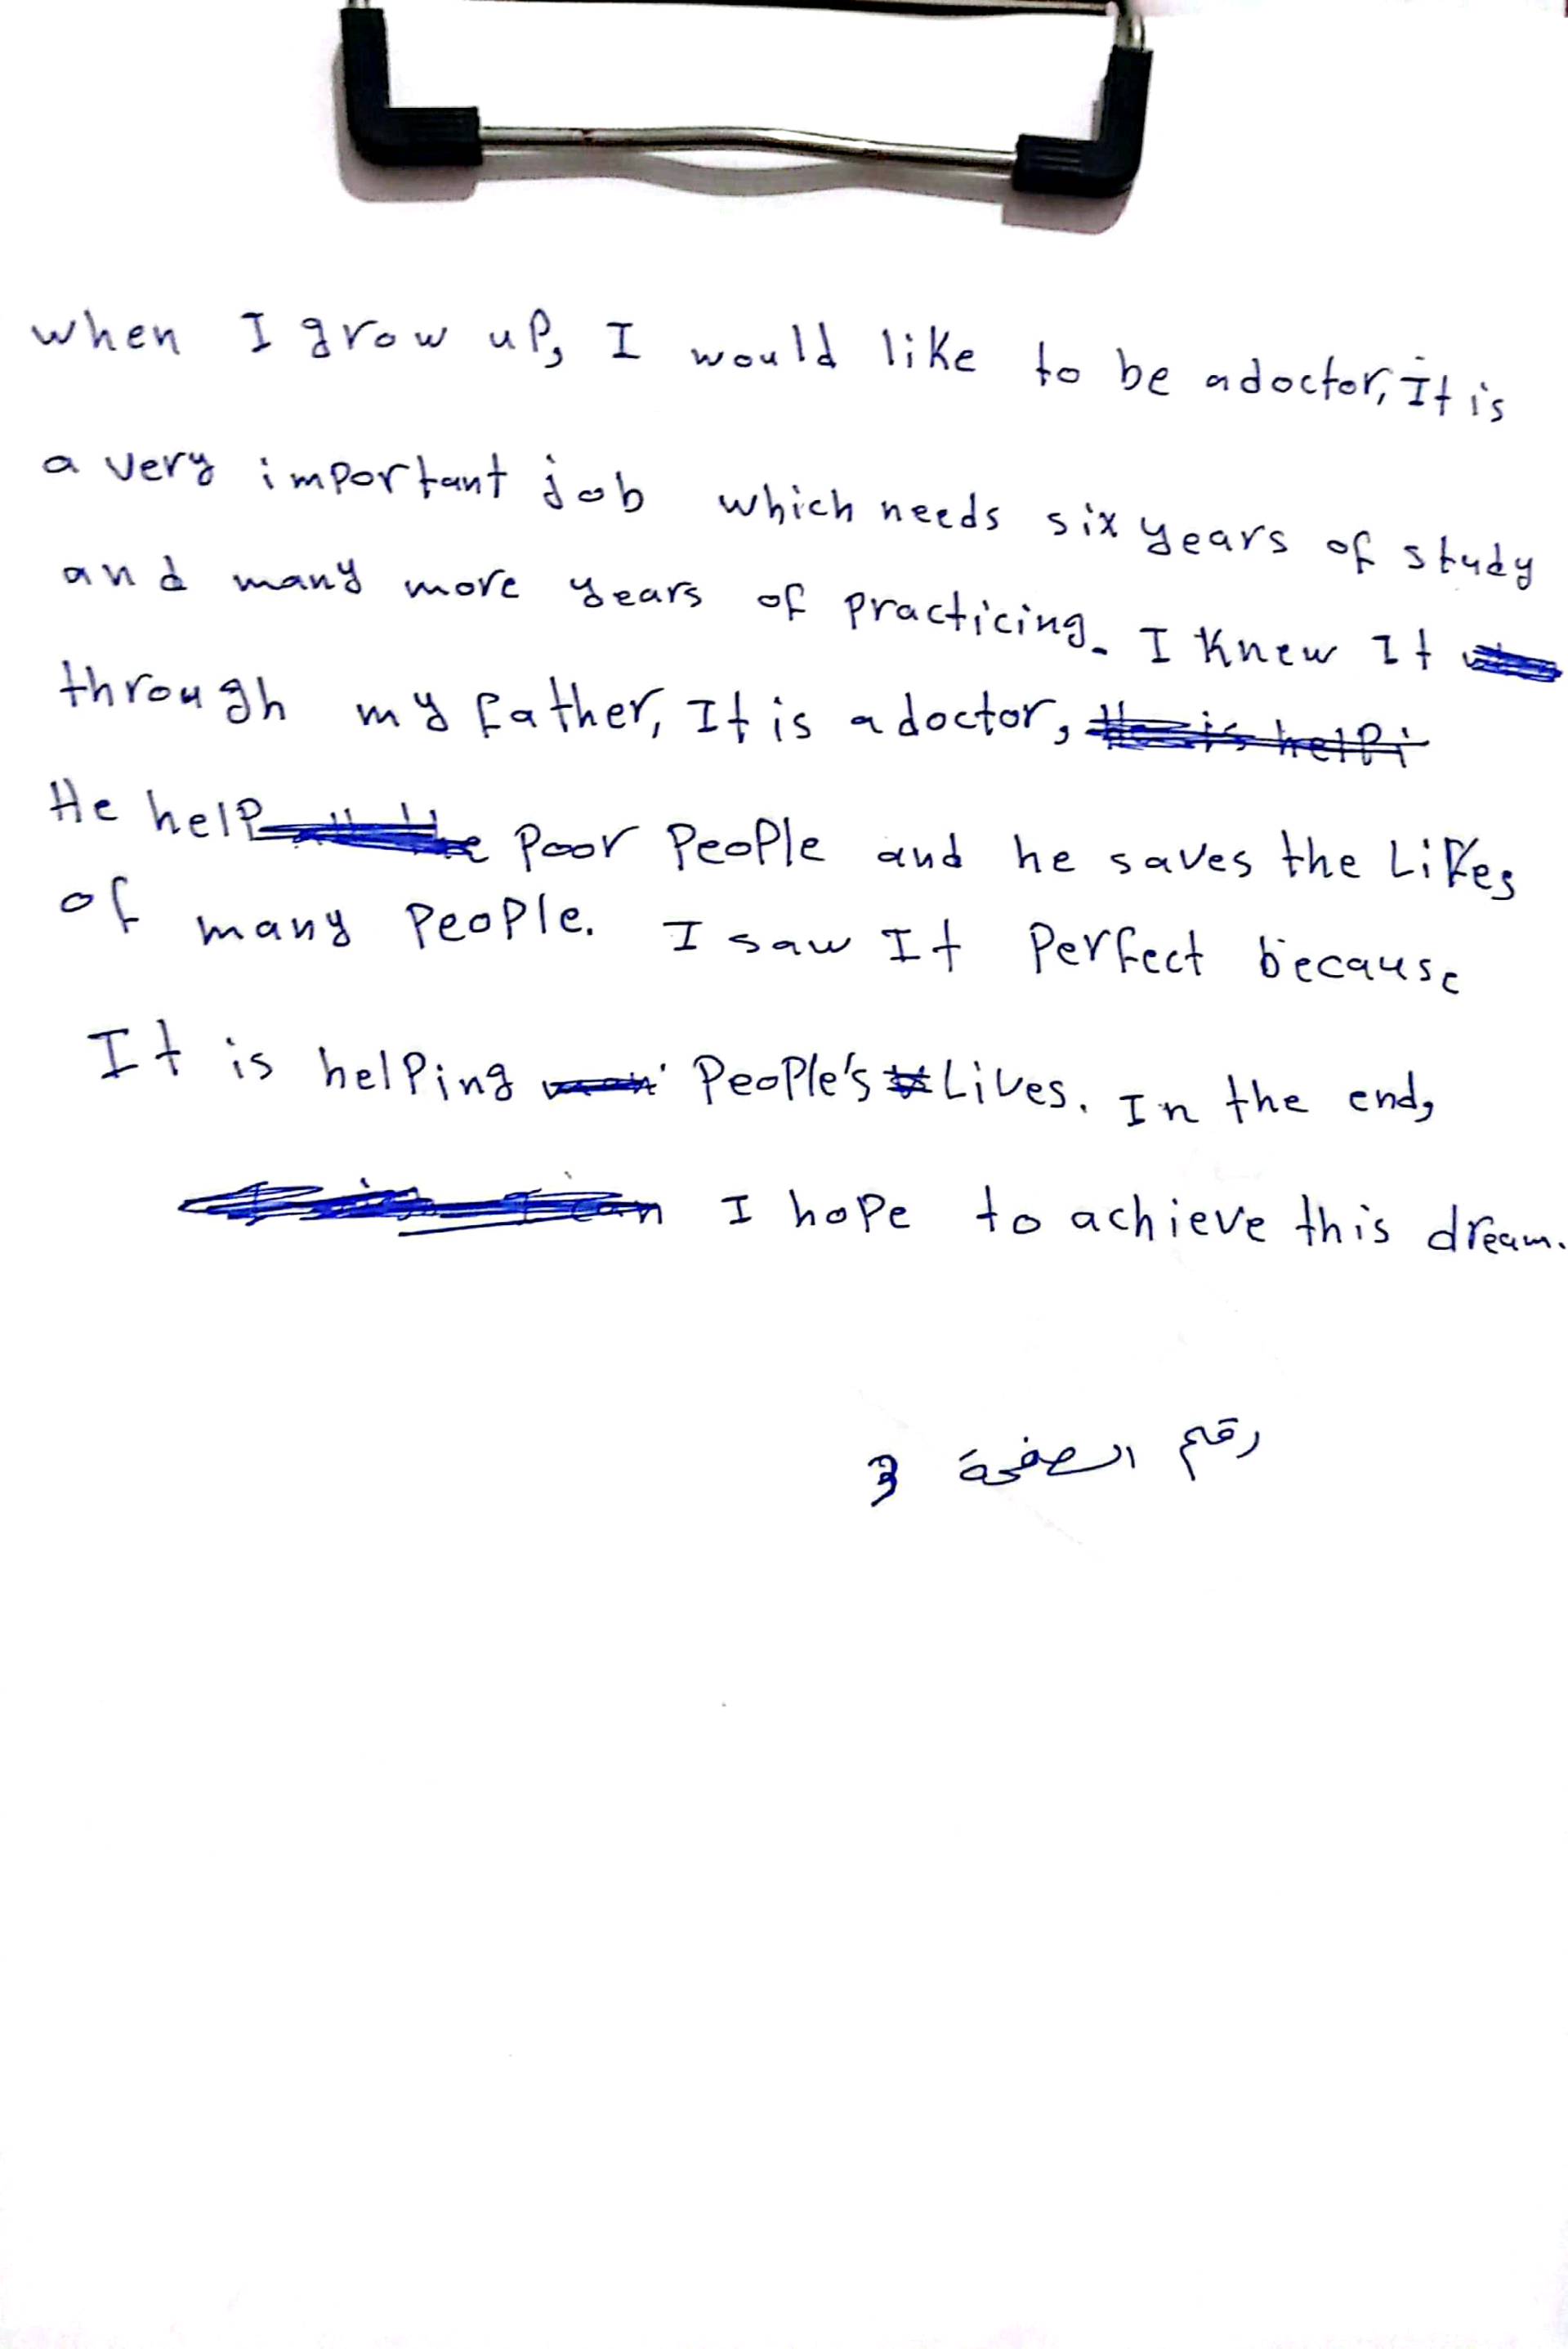 when I grow up, I would like to be a doctor, It is
a very important job which needs six years of study
and many more years of practicing. I Knew It
through my father, It is a doctor,
He help poor people and he saves the Lifes
of many people. I saw It perfect because
It is helping people's Lives. In the end,
I hope to achieve this dream.
رقم الصفحة 3